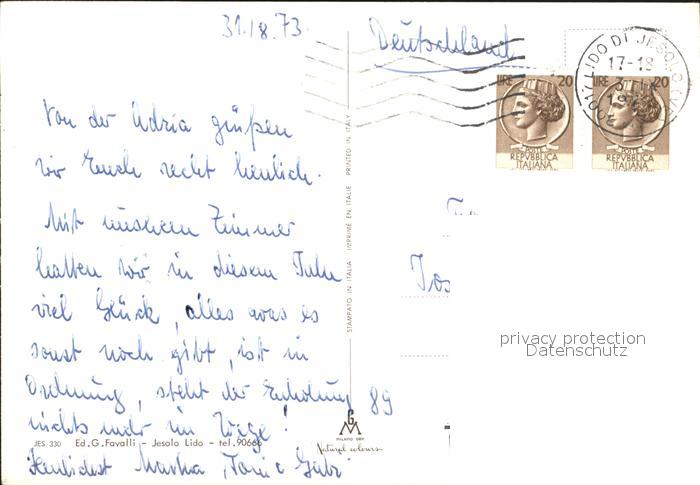 31.8.73
Deutschland
Von der Adria grüßen
wir Euch recht herzlich.
Mit unserem Zimmer
hatten wir in diesem Jahr
viel Glück, alles was es
sonst noch gibt, ist in
Ordnung, steht der Erholung
nichts mehr im Wege!
Herzlichst
LIDO DI JESOLO
17-18
LIRE 20
POSTE
REPVBBLICA
ITALIANA
LIRE 20
POSTE
REPVBBLICA
ITALIANA
STAMPATO IN ITALIA IMPRIME EN ITALIE PRINTED IN ITALY
privacy protection
Datenschutz
89
GM
MILANO
Natural colours
JES. 330 Ed. G. Favalli - Jesolo Lido - tel. 90666